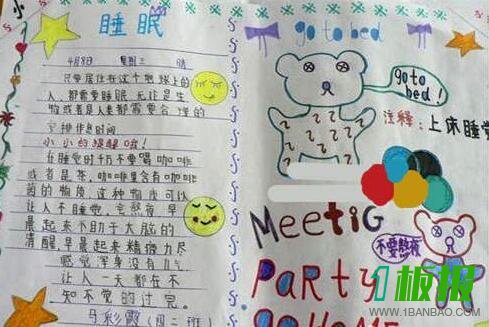 睡眠
4月8日 星期三 晴
只要居住在这个地球上的
人,都需要睡眠,无论是生
物或者是人类都需要合理的
安排作息时间
小小的提醒哦!
在睡觉时千万不要喝咖啡
或者是茶,咖啡里含有咖啡
因的物质,这种物质可以
让人不睡觉,宅熬夜早
晨起来不助于大脑的
清醒,早晨起来精神力尽
感觉浑身没有力气
让人一天都在不
知不觉的过完。
马彩霞(四二班)
go to bed
go to bed!
注释:上床睡觉
MeetiG
PaRtY
goHOME
不要熬夜
1板报
WWW.1BANBAO.COM